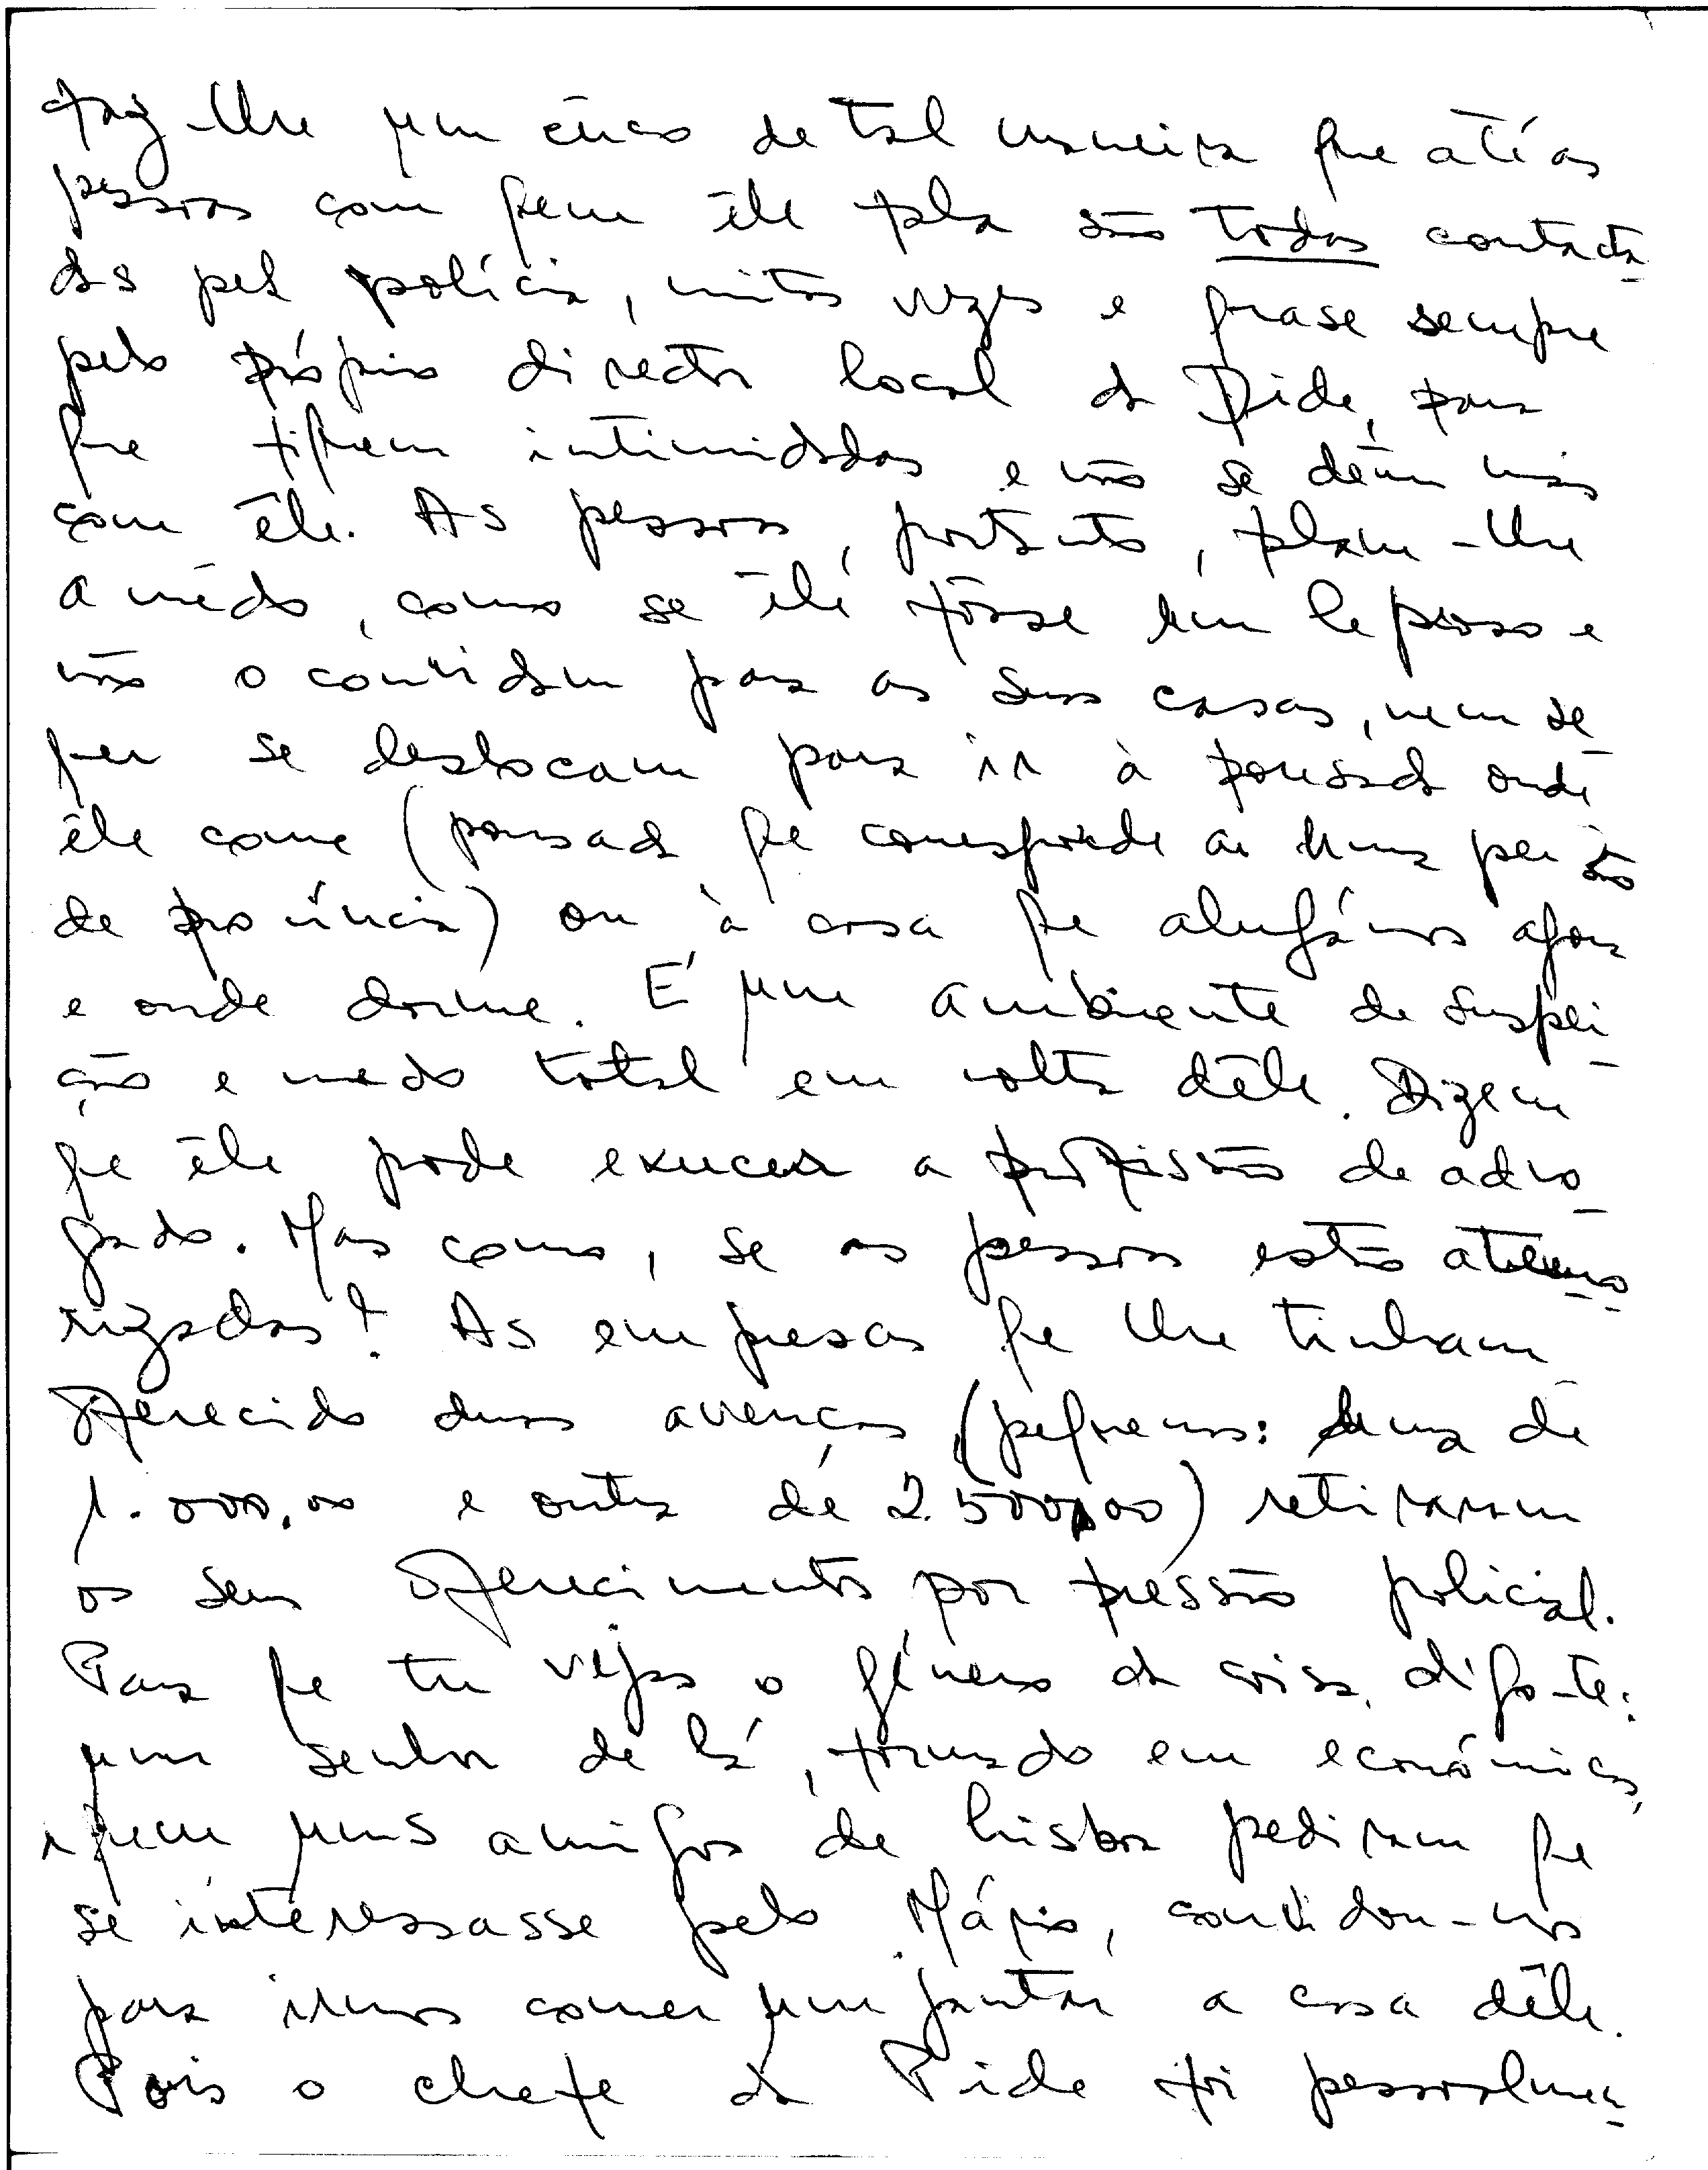 faz-lhe um cêrco de tal maneira que até as
pessoas com quem êle fala são todas contacta-
das pela polícia, muitas vezes e quase sempre
pelo próprio director local da Pide, para
que fiquem intimidadas e não se dêem mais
com êle. As pessoas, portanto, falam-lhe
a mêdo, como se êle fôsse um leproso e
não o convidam para as suas casas, nem se-
quer se deslocam para ir à pousada onde
êle come (pousada que corresponde aí numa pensão
de província) ou à casa que alugámos agora
e onde dorme. É um ambiente de suspei-
ção e medo total em volta dêle. Dizem
que êle pode exercer a profissão de advo-
gado. Mas como, se as pessoas estão atemo-
rizadas? As empresas que lhe tinham
oferecido duas avenças (pequenas: uma de
1.000,00 e outra de 2.500,00) retiraram
os seus oferecimentos por pressão policial.
Para que tu vejas o género da coisa, digo-te:
um senhor de lá, formado em económicas,
a quem uns amigos de Lisboa pediram que
se interessasse pelo Mário, convidou-nos
para irmos comer um jantar a casa dêle.
Pois o chefe da Pide foi pessoalmen-